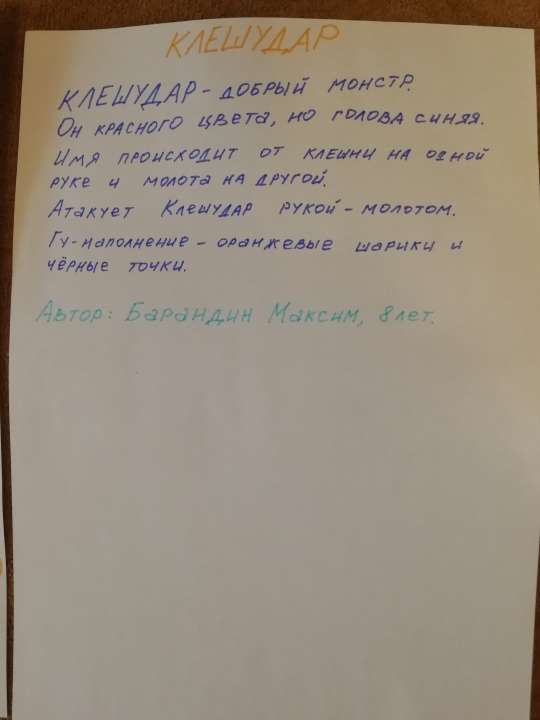 КЛЕШУДАР
КЛЕШУДАР - ДОБРЫЙ МОНСТР.
ОН КРАСНОГО ЦВЕТА, НО ГОЛОВА СИНЯЯ.
ИМЯ ПРОИСХОДИТ ОТ КЛЕШНИ НА ОДНОЙ
РУКЕ И МОЛОТА НА ДРУГОЙ.
АТАКУЕТ КЛЕШУДАР РУКОЙ - МОЛОТОМ.
ГУ-НАПОЛНЕНИЕ - ОРАНЖЕВЫЕ ШАРИКИ И
ЧЁРНЫЕ ТОЧКИ.
АВТОР: БАРАНДИН МАКСИМ, 8 ЛЕТ.